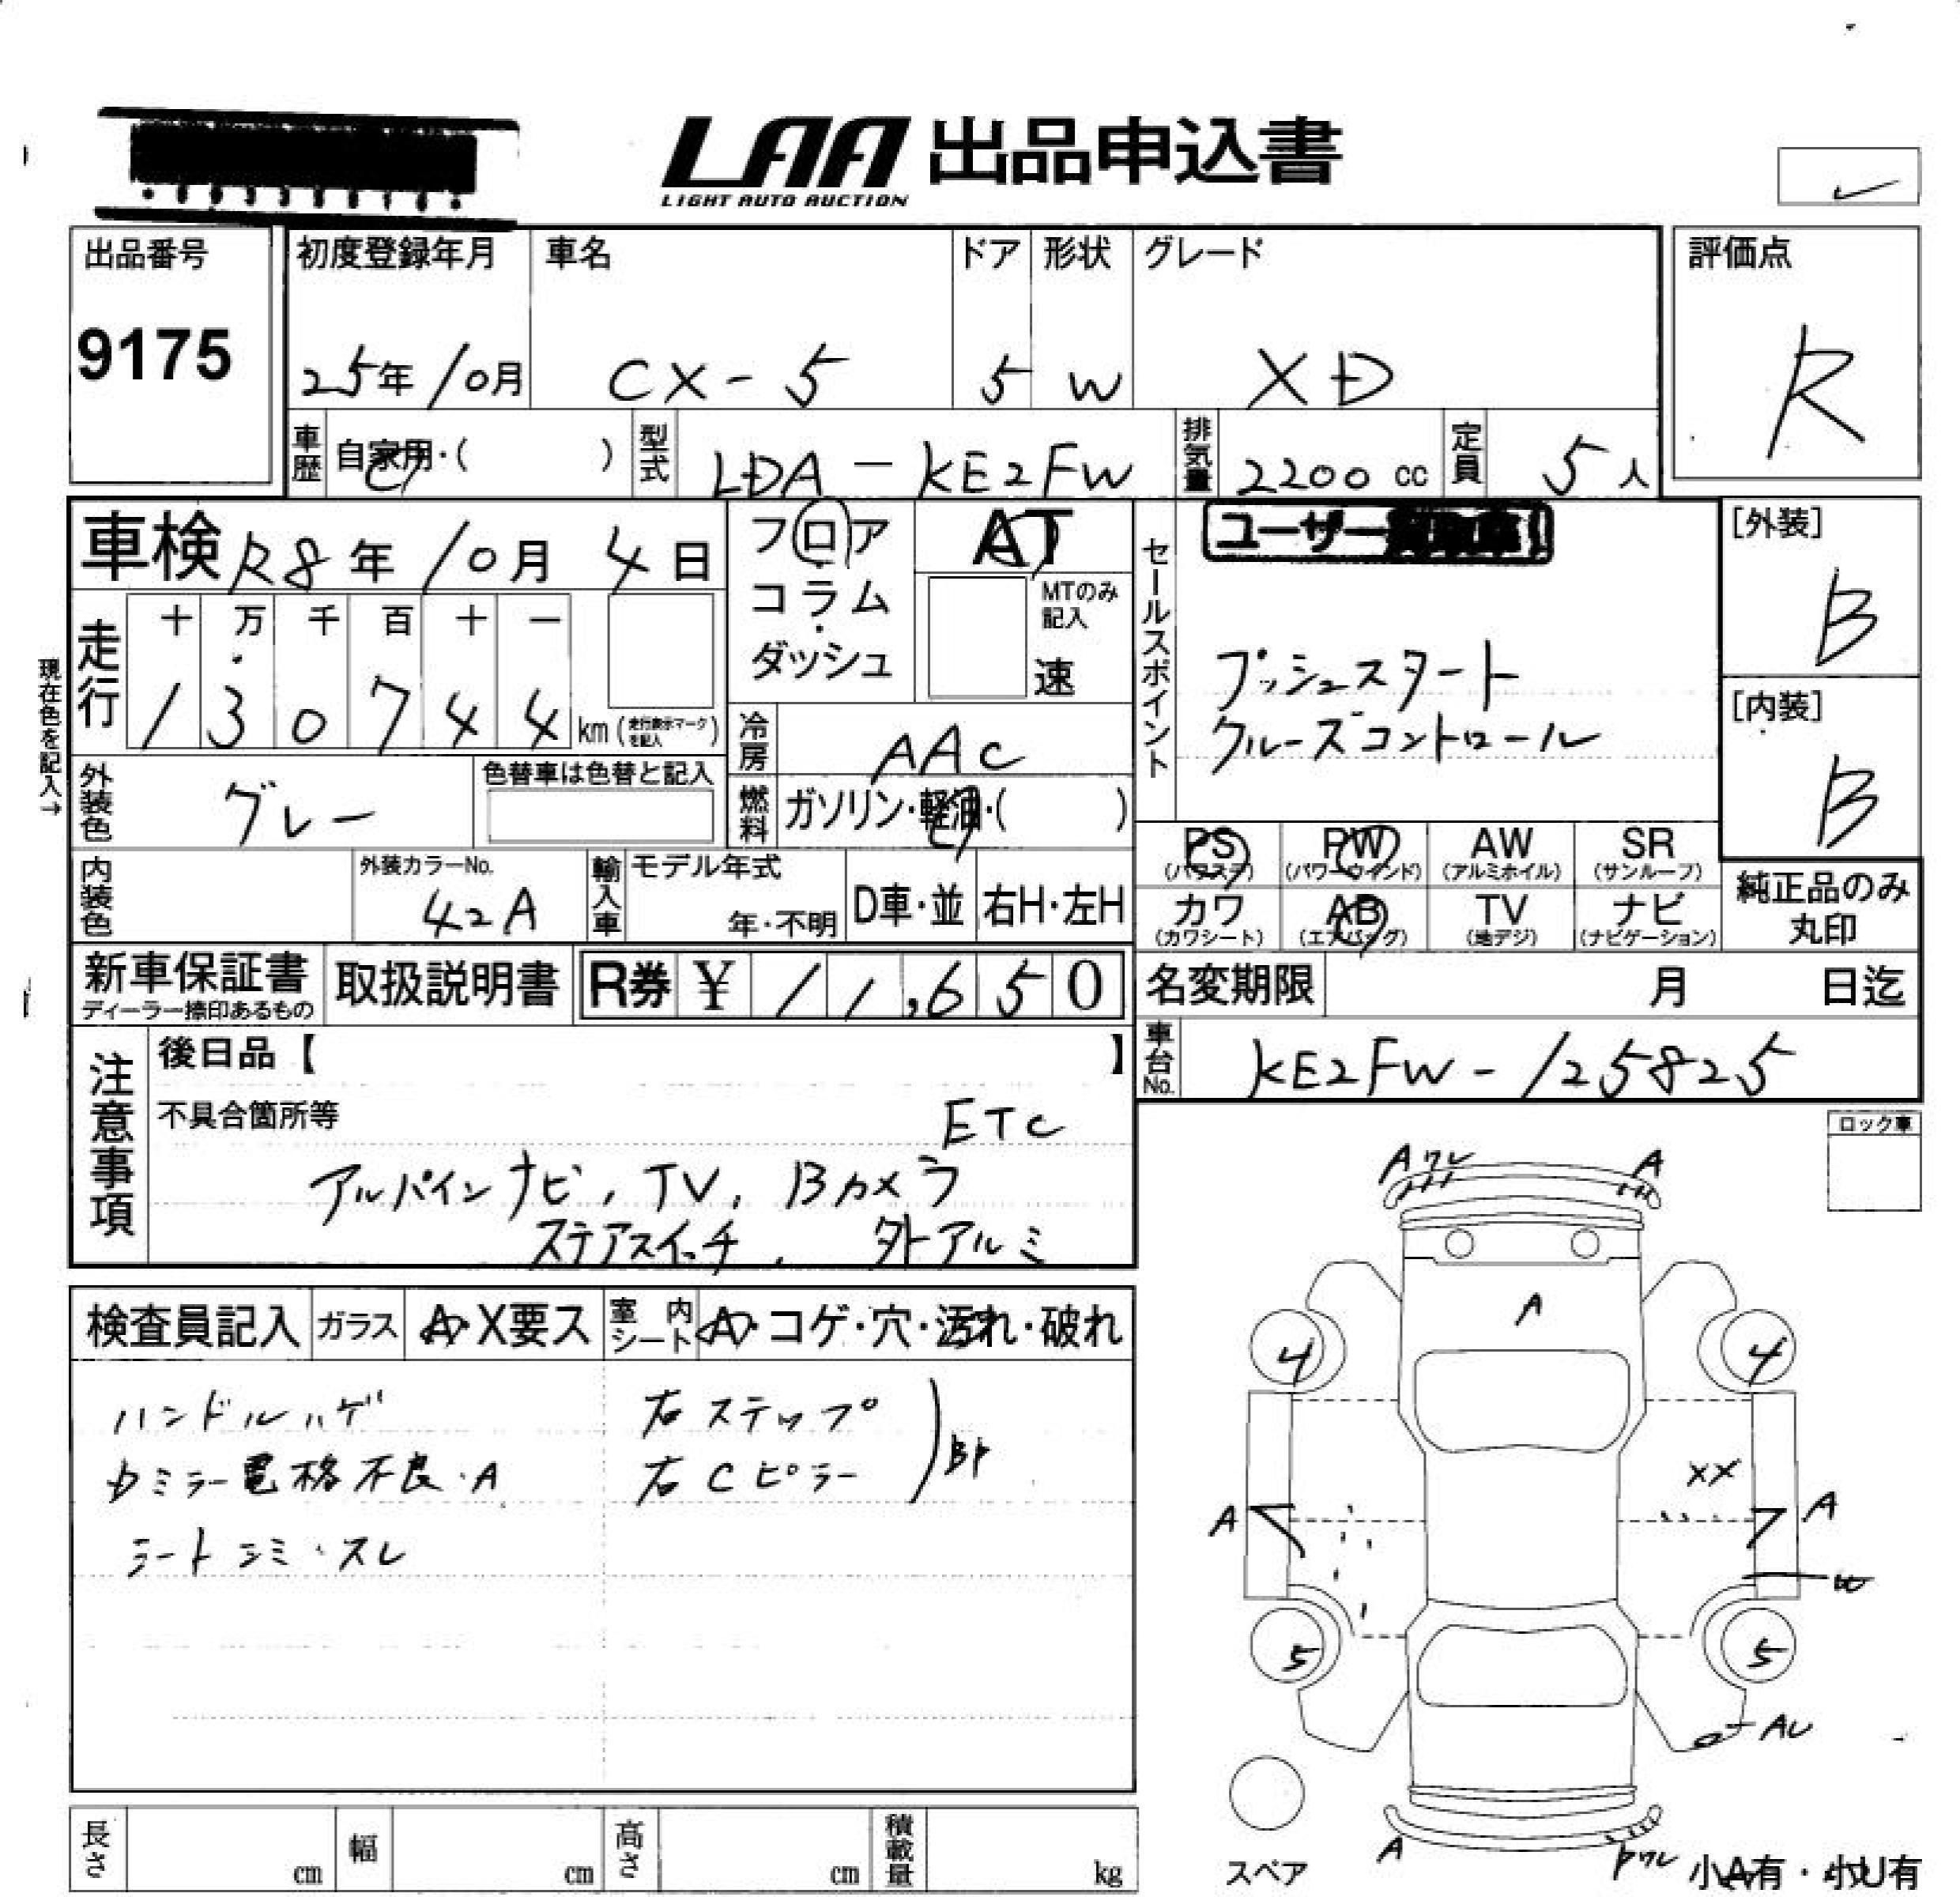 LAA 出品申込書
LIGHT AUTO AUCTION
出品番号
9175
初度登録年月
25年10月
車名
CX-5
ドア
5
形状
W
グレード
XD
評価点
R
車歴 自家用・( )
型式 LDA-KE2FW
排気量 2200 cc
定員 5人
車検 R8年10月4日
フロア・コラム・ダッシュ
AT
MTのみ記入
速
セールスポイント
ユーザー
プッシュスタート
クルーズコントロール
[外装]
B
[内装]
B
現在色を記入→
走行
十 万 千 百 十 一
1 3 0 7 4 4 km (走行表示マークを記入)
冷房 AAC
外装色 グレー
色替車は色替と記入
燃料 ガソリン・軽油・( )
PS (パワステ) PW (パワーウインド) AW (アルミホイル) SR (サンルーフ)
カワ (カワシート) AB (エアバッグ) TV (地デジ) ナビ (ナビゲーション)
純正品のみ丸印
内装色
外装カラーNo.
42A
輸入車 モデル年式
年・不明
D車・並
右H・左H
新車保証書
ディーラー捺印あるもの
取扱説明書
R券 ¥ 11,650
名変期限 月 日迄
車台No. KE2FW-125825
注意事項
後日品【 】
不具合箇所等
ETC
アルパインナビ, TV, Bカメラ
ステアスイッチ, 外アルミ
ロック車
検査員記入 ガラス A・X要ス 室内シート A・コゲ・穴・汚れ・破れ
ハンドルハゲ
右ステップ
ミラー電格不良・A
右Cピラー
シートシミ・スレ
Aワレ
A
A
4
4
XX
A
A
W
5
5
AU
A
ワレ
スペア
小A有・小U有
長さ cm
幅 cm
高さ cm
積載量 kg